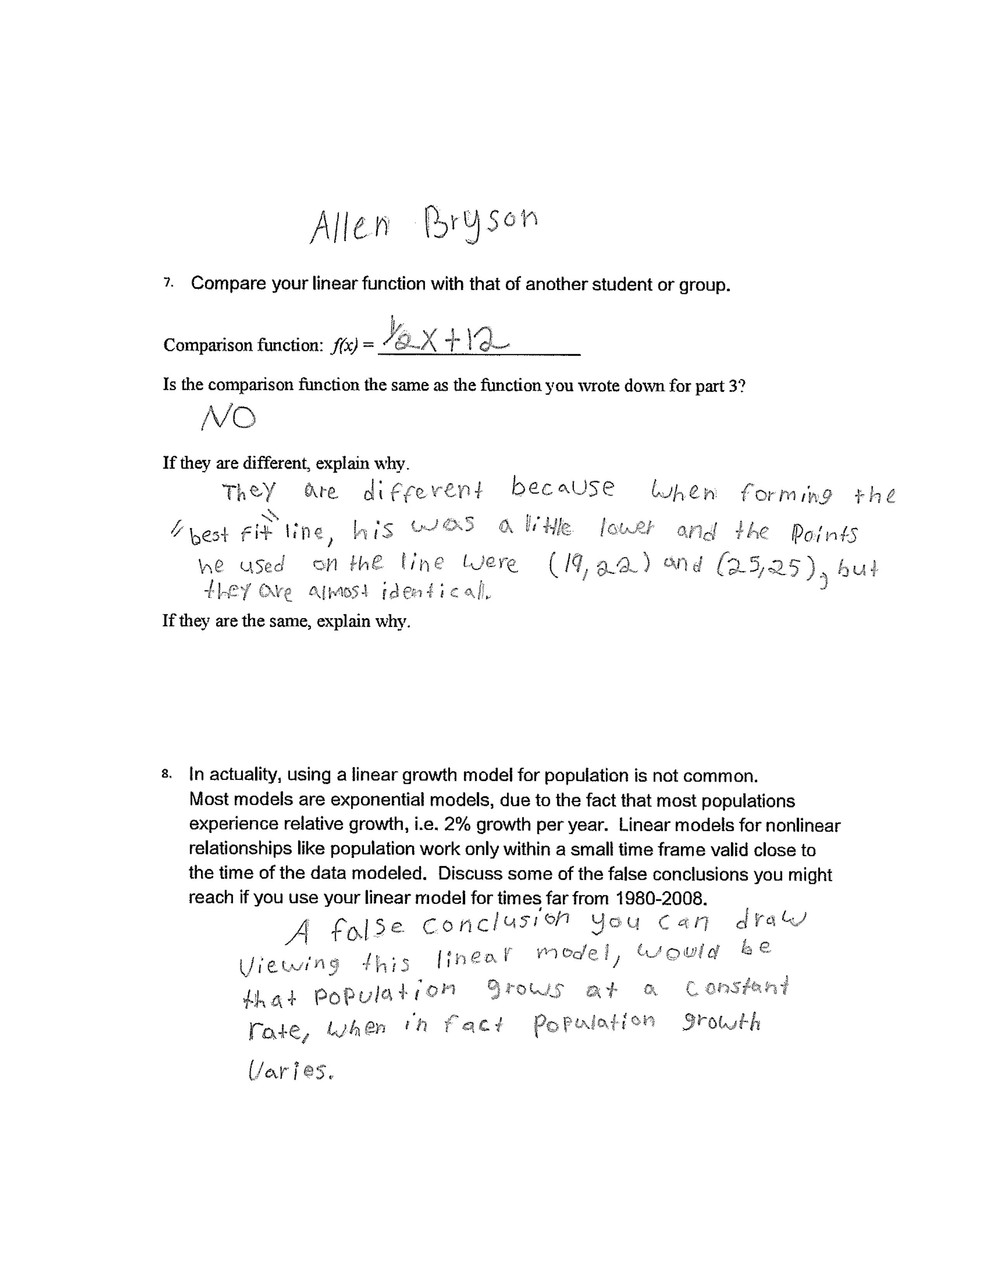 Allen Bryson
7. Compare your linear function with that of another student or group.
Comparison function: f(x) = 1/2x+12
Is the comparison function the same as the function you wrote down for part 3?
NO
If they are different, explain why.
They are different because when forming the
"best fit" line, his was a little lower and the points
he used on the line were (19,22) and (25,25), but
they are almost identical.
If they are the same, explain why.
8. In actuality, using a linear growth model for population is not common.
Most models are exponential models, due to the fact that most populations
experience relative growth, i.e. 2% growth per year. Linear models for nonlinear
relationships like population work only within a small time frame valid close to
the time of the data modeled. Discuss some of the false conclusions you might
reach if you use your linear model for times far from 1980-2008.
A false conclusion you can draw
viewing this linear model, would be
that population grows at a constant
rate, when in fact population growth
varies.